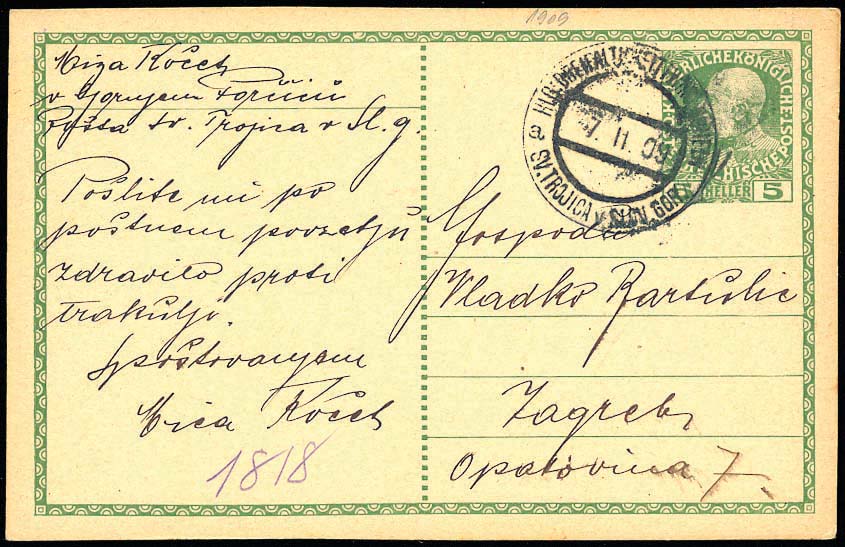 1909
Miza Kočet
v Gornjem Porčiču
Pošta Sv. Trojica v Sl. g.
Pošlite mi po
poštnem povzetju
zdravilo proti
trakulji.
Spoštovanjem
Mica Kočet
1818
SV. TROJICA v SLOV. GOR.
7 II 09
KÖNIGLICHE
HELLER
5
Gospodu
Vladko Bartulic
Zagreb
Opatovina 7